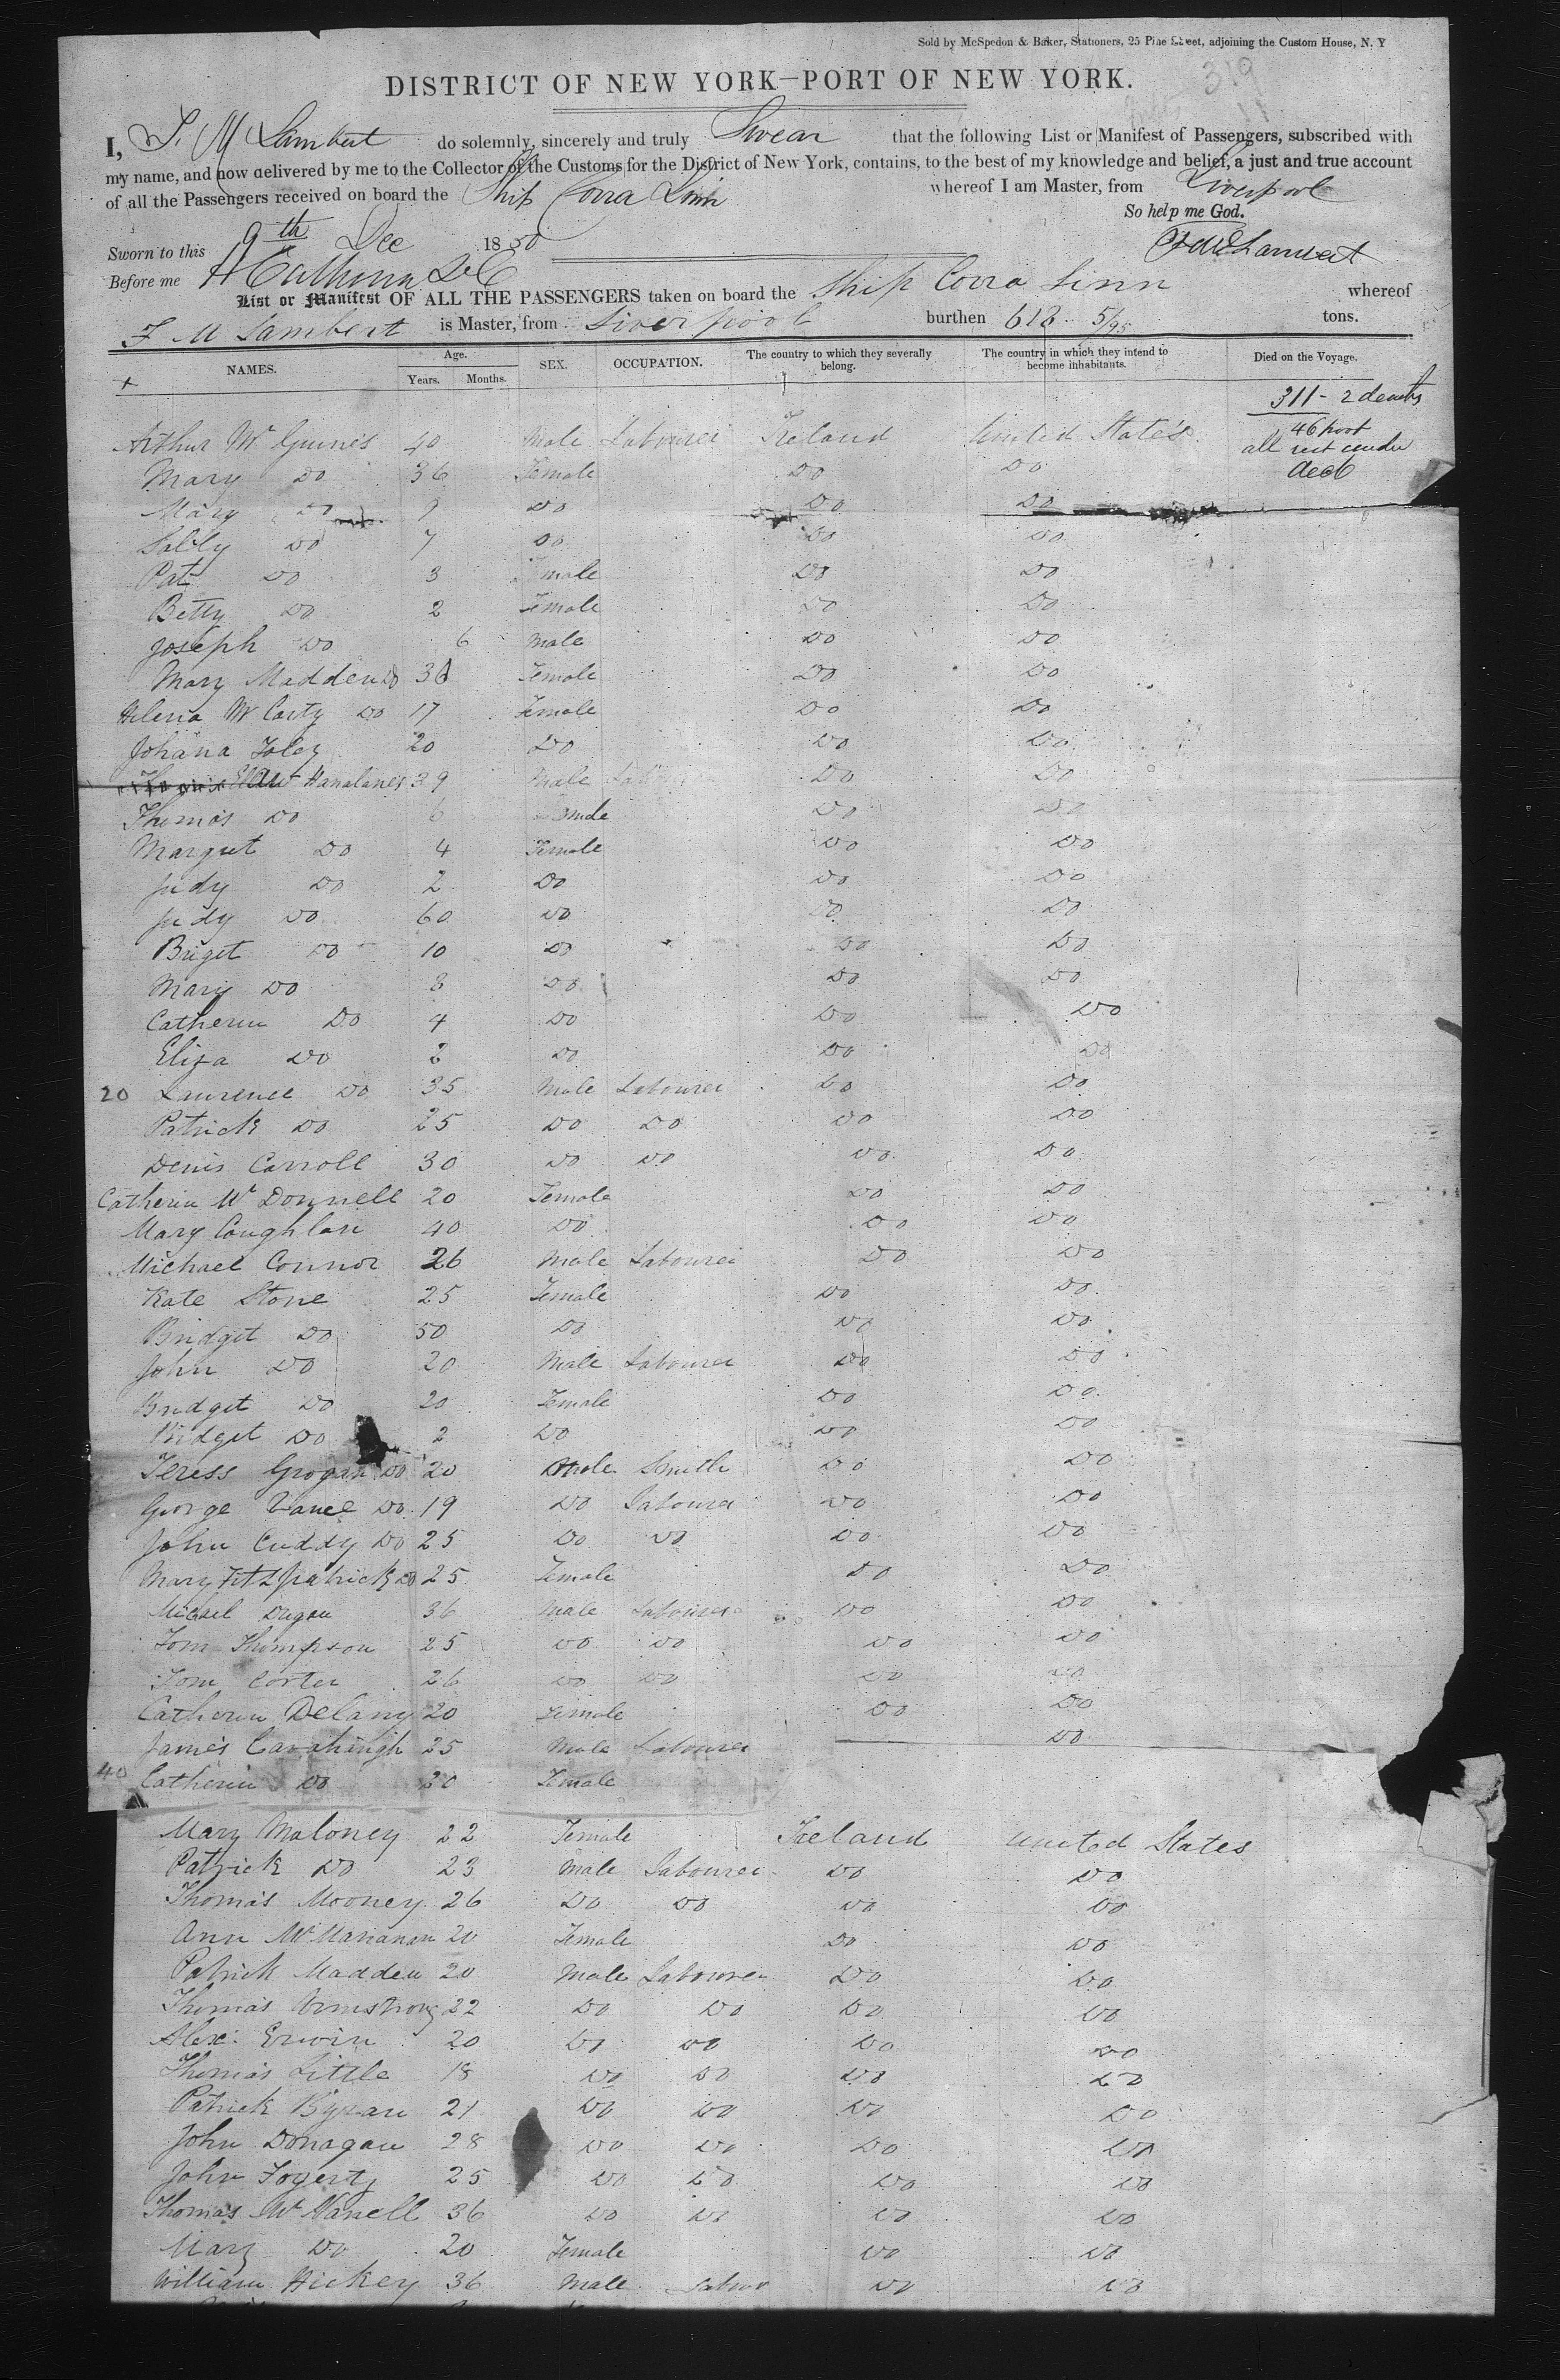 Sold by McSpedon & Baker, Stationers, 25 Pine Street, adjoining the Custom House, N. Y
319
DISTRICT OF NEW YORK—PORT OF NEW YORK.
I, F. M Lambert do solemnly, sincerely and truly Swear that the following List or Manifest of Passengers, subscribed with
my name, and now delivered by me to the Collector of the Customs for the District of New York, contains, to the best of my knowledge and belief, a just and true account
of all the Passengers received on board the Ship Corra Linn whereof I am Master, from Liverpool
So help me God.
Sworn to this 9th Dec 1850
F M Lambert
Before me Calhoun
List or Manifest OF ALL THE PASSENGERS taken on board the Ship Corra Linn whereof
F M Lambert is Master, from Liverpool burthen 618 5/95 tons.
NAMES. Age. Years. Months. SEX. OCCUPATION. The country to which they severally belong. The country in which they intend to become inhabitants. Died on the Voyage.
311 - 2 deaths
Arthur Mc Guines 40 Male Labourer Ireland United States
46 poop
all rest under
deck
Mary Do 36 Female Do Do
Mary Do 9 Do Do Do
Sally Do 7 Do Do Do
Pat Do 3 Female Do Do
Betty Do 2 Female Do Do
Joseph Do 6 Male Do Do
Mary Madden Do 36 Female Do Do
Helena Mc Carty Do 17 Female Do Do
Johana Foley 20 Do Do Do
39 Male Do Do
Thomas Do 6 Do Do
Margret Do 4 Female Do Do
Judy Do 2 Do Do Do
Judy Do 60 Do Do Do
Briget Do 10 Do Do Do
Mary Do 8 Do Do Do
Catherin Do 4 Do Do Do
Eliza Do 2 Do Do Do
20 Laurence Do 35 Male Labourer Do Do
Patrick Do 25 Do Do Do Do
Denis Carroll 30 Do Do Do Do
Catherin Mc Donnell 20 Female Do Do
Mary Coughlan 40 Do Do Do
Michael Connor 26 Male Labourer Do Do
Kate Stone 25 Female Do Do
Bridget Do 50 Do Do Do
John Do 20 Male Labourer Do Do
Bridget Do 20 Female Do Do
Bridget Do 2 Do Do Do
Teress Grogan Do 20 Male Smith Do Do
George Vance Do 19 Do Labourer Do Do
John Cuddy Do 25 Do Do Do Do
Mary Fitzpatrick Do 25 Female Do Do
Micael Dugan 36 Male Labourer Do Do
Tom Thompson 25 Do Do Do Do
Tom Corter 26 Do Do Do Do
Catherin Delany 20 Female Do Do
James Cavahangh 25 Male Labourer Do
40 Catherin Do 20 Female
Mary Maloney 22 Female Ireland United States
Patrick Do 23 Male Labourer Do Do
Thomas Mooney 26 Do Do Do Do
Ann 20 Female Do Do
Patrick Madden 20 Male Labourer Do Do
Thomas Armstrong 22 Do Do Do Do
Alex. Erwin 20 Do Do Do Do
Thomas Little 18 Do Do Do Do
Patrick 21 Do Do Do Do
John Donagan 28 Do Do Do Do
John Fogerty 25 Do Do Do Do
Thomas Mc Nanell 36 Do Do Do Do
Mary Do 20 Female Do Do
William Hickey 36 Male Labour Do Do